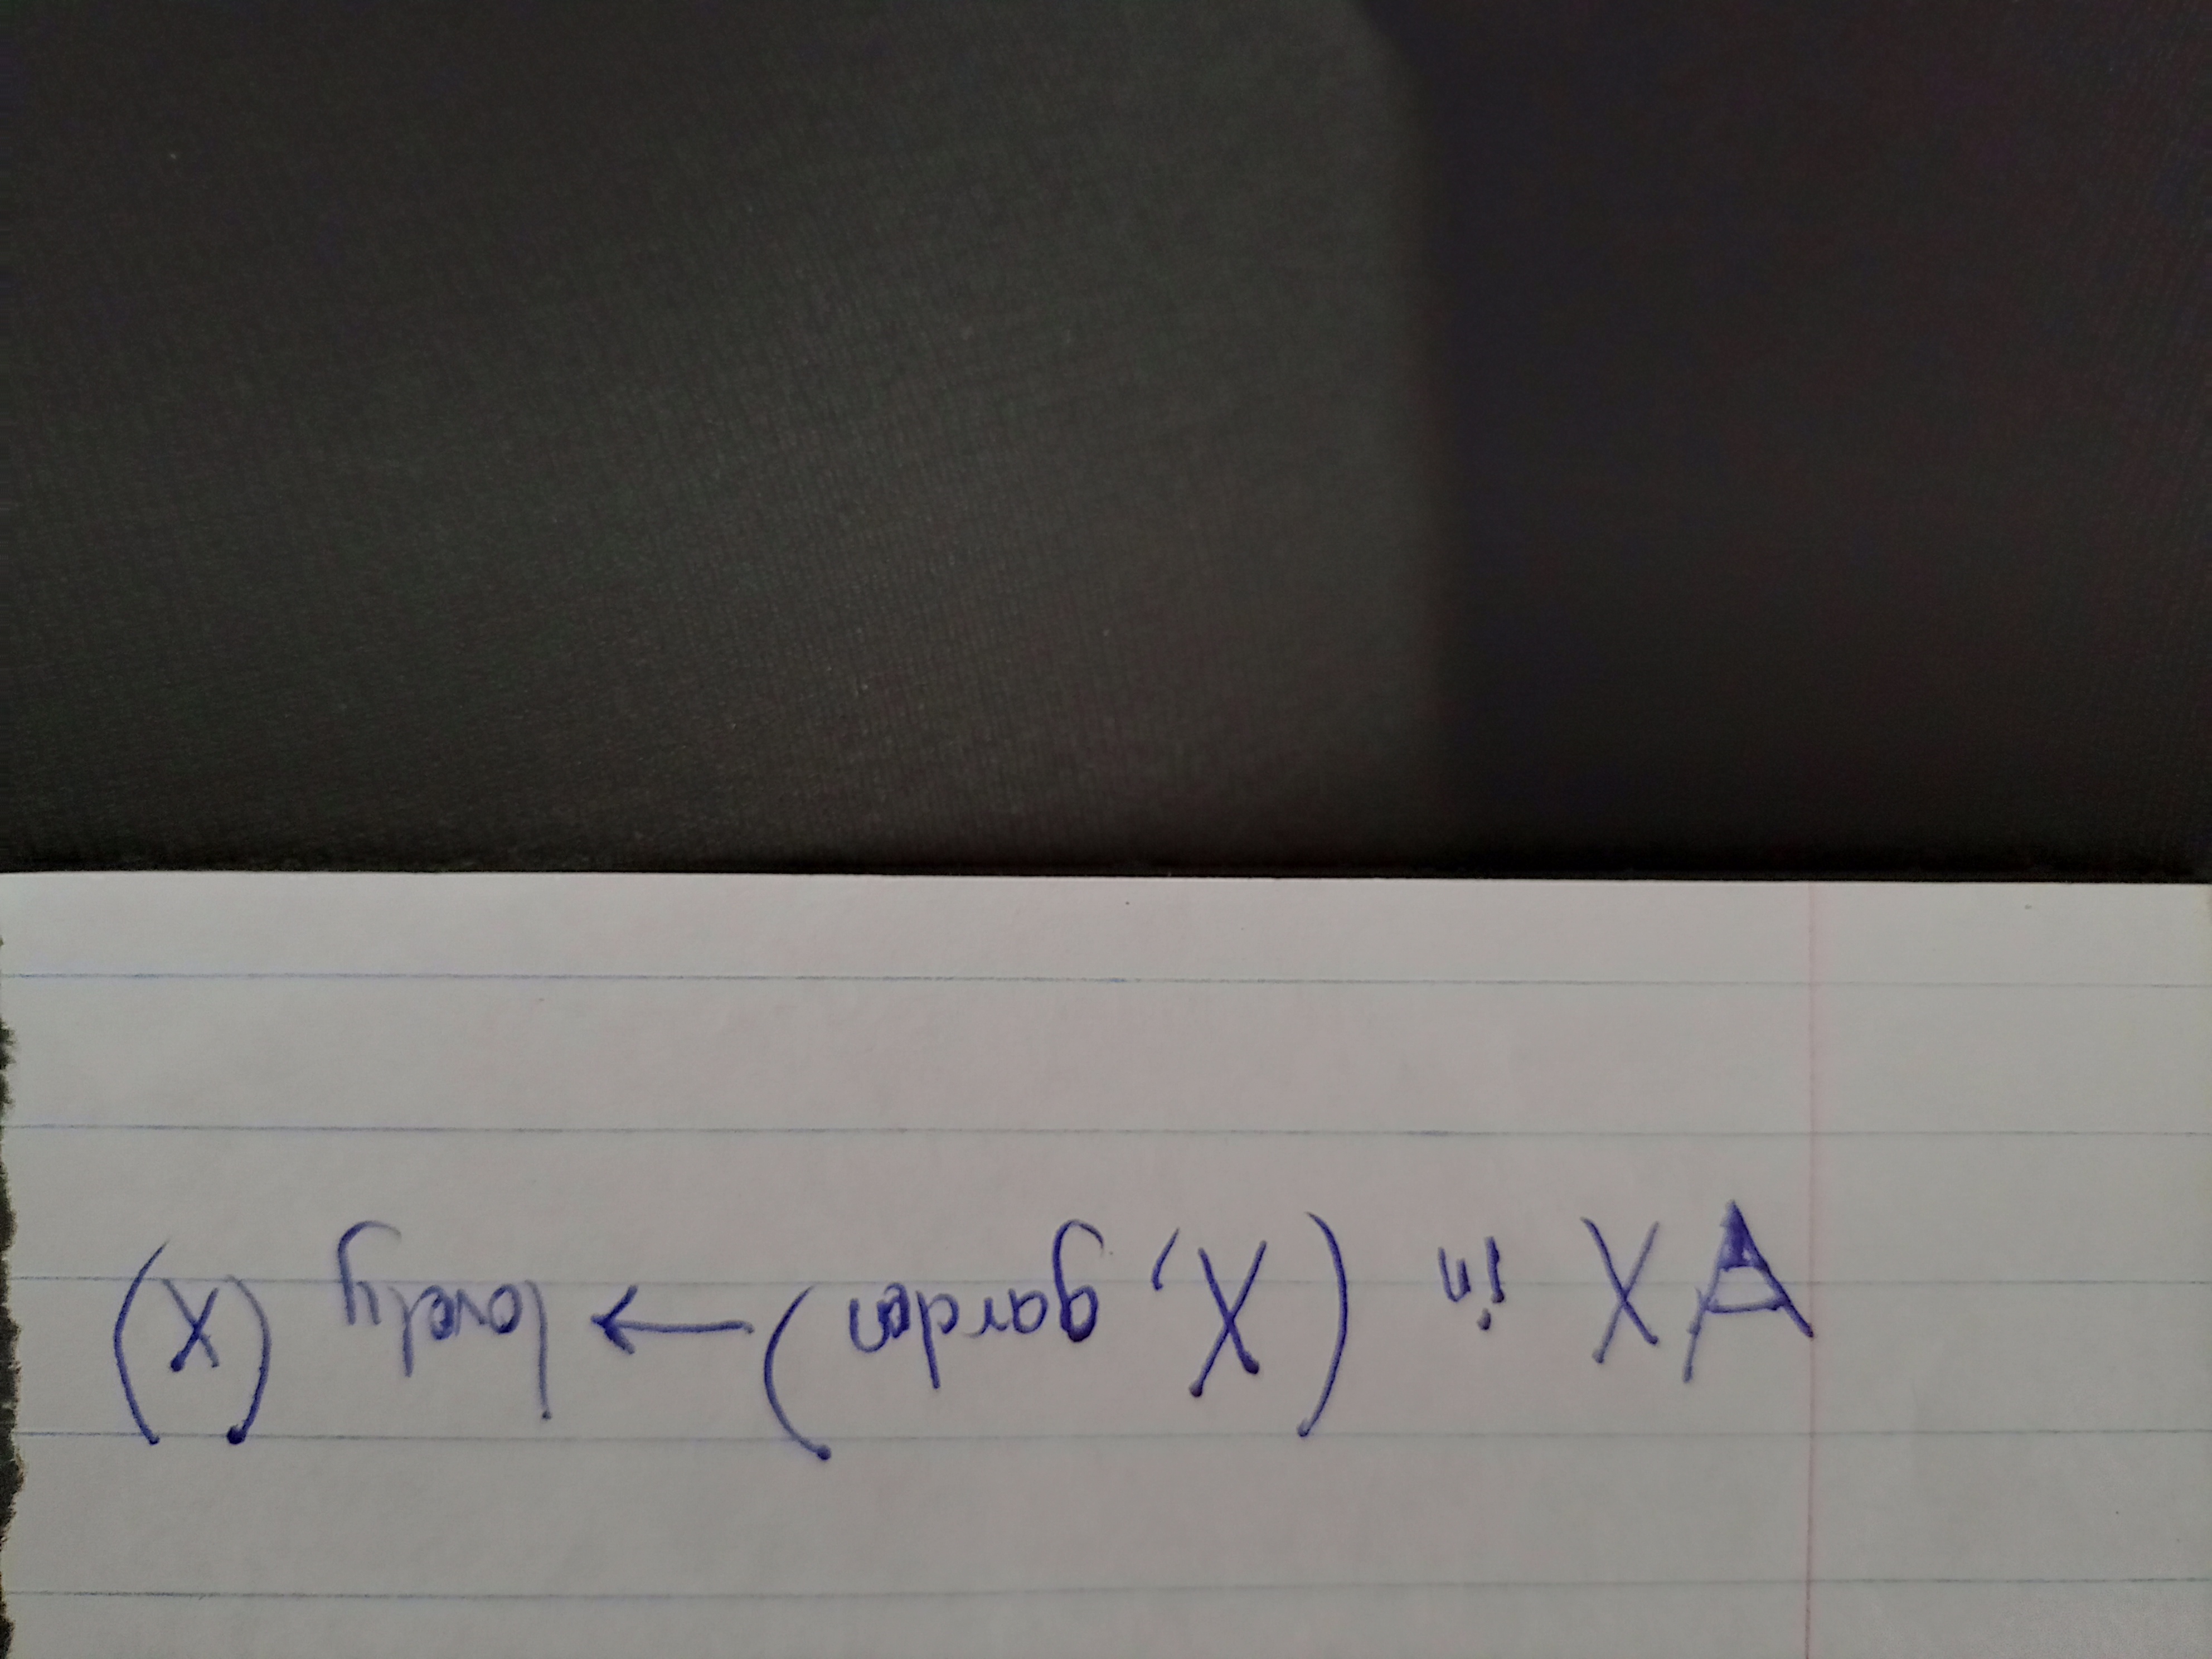 ∀X in (X, garden) → lovely (X)